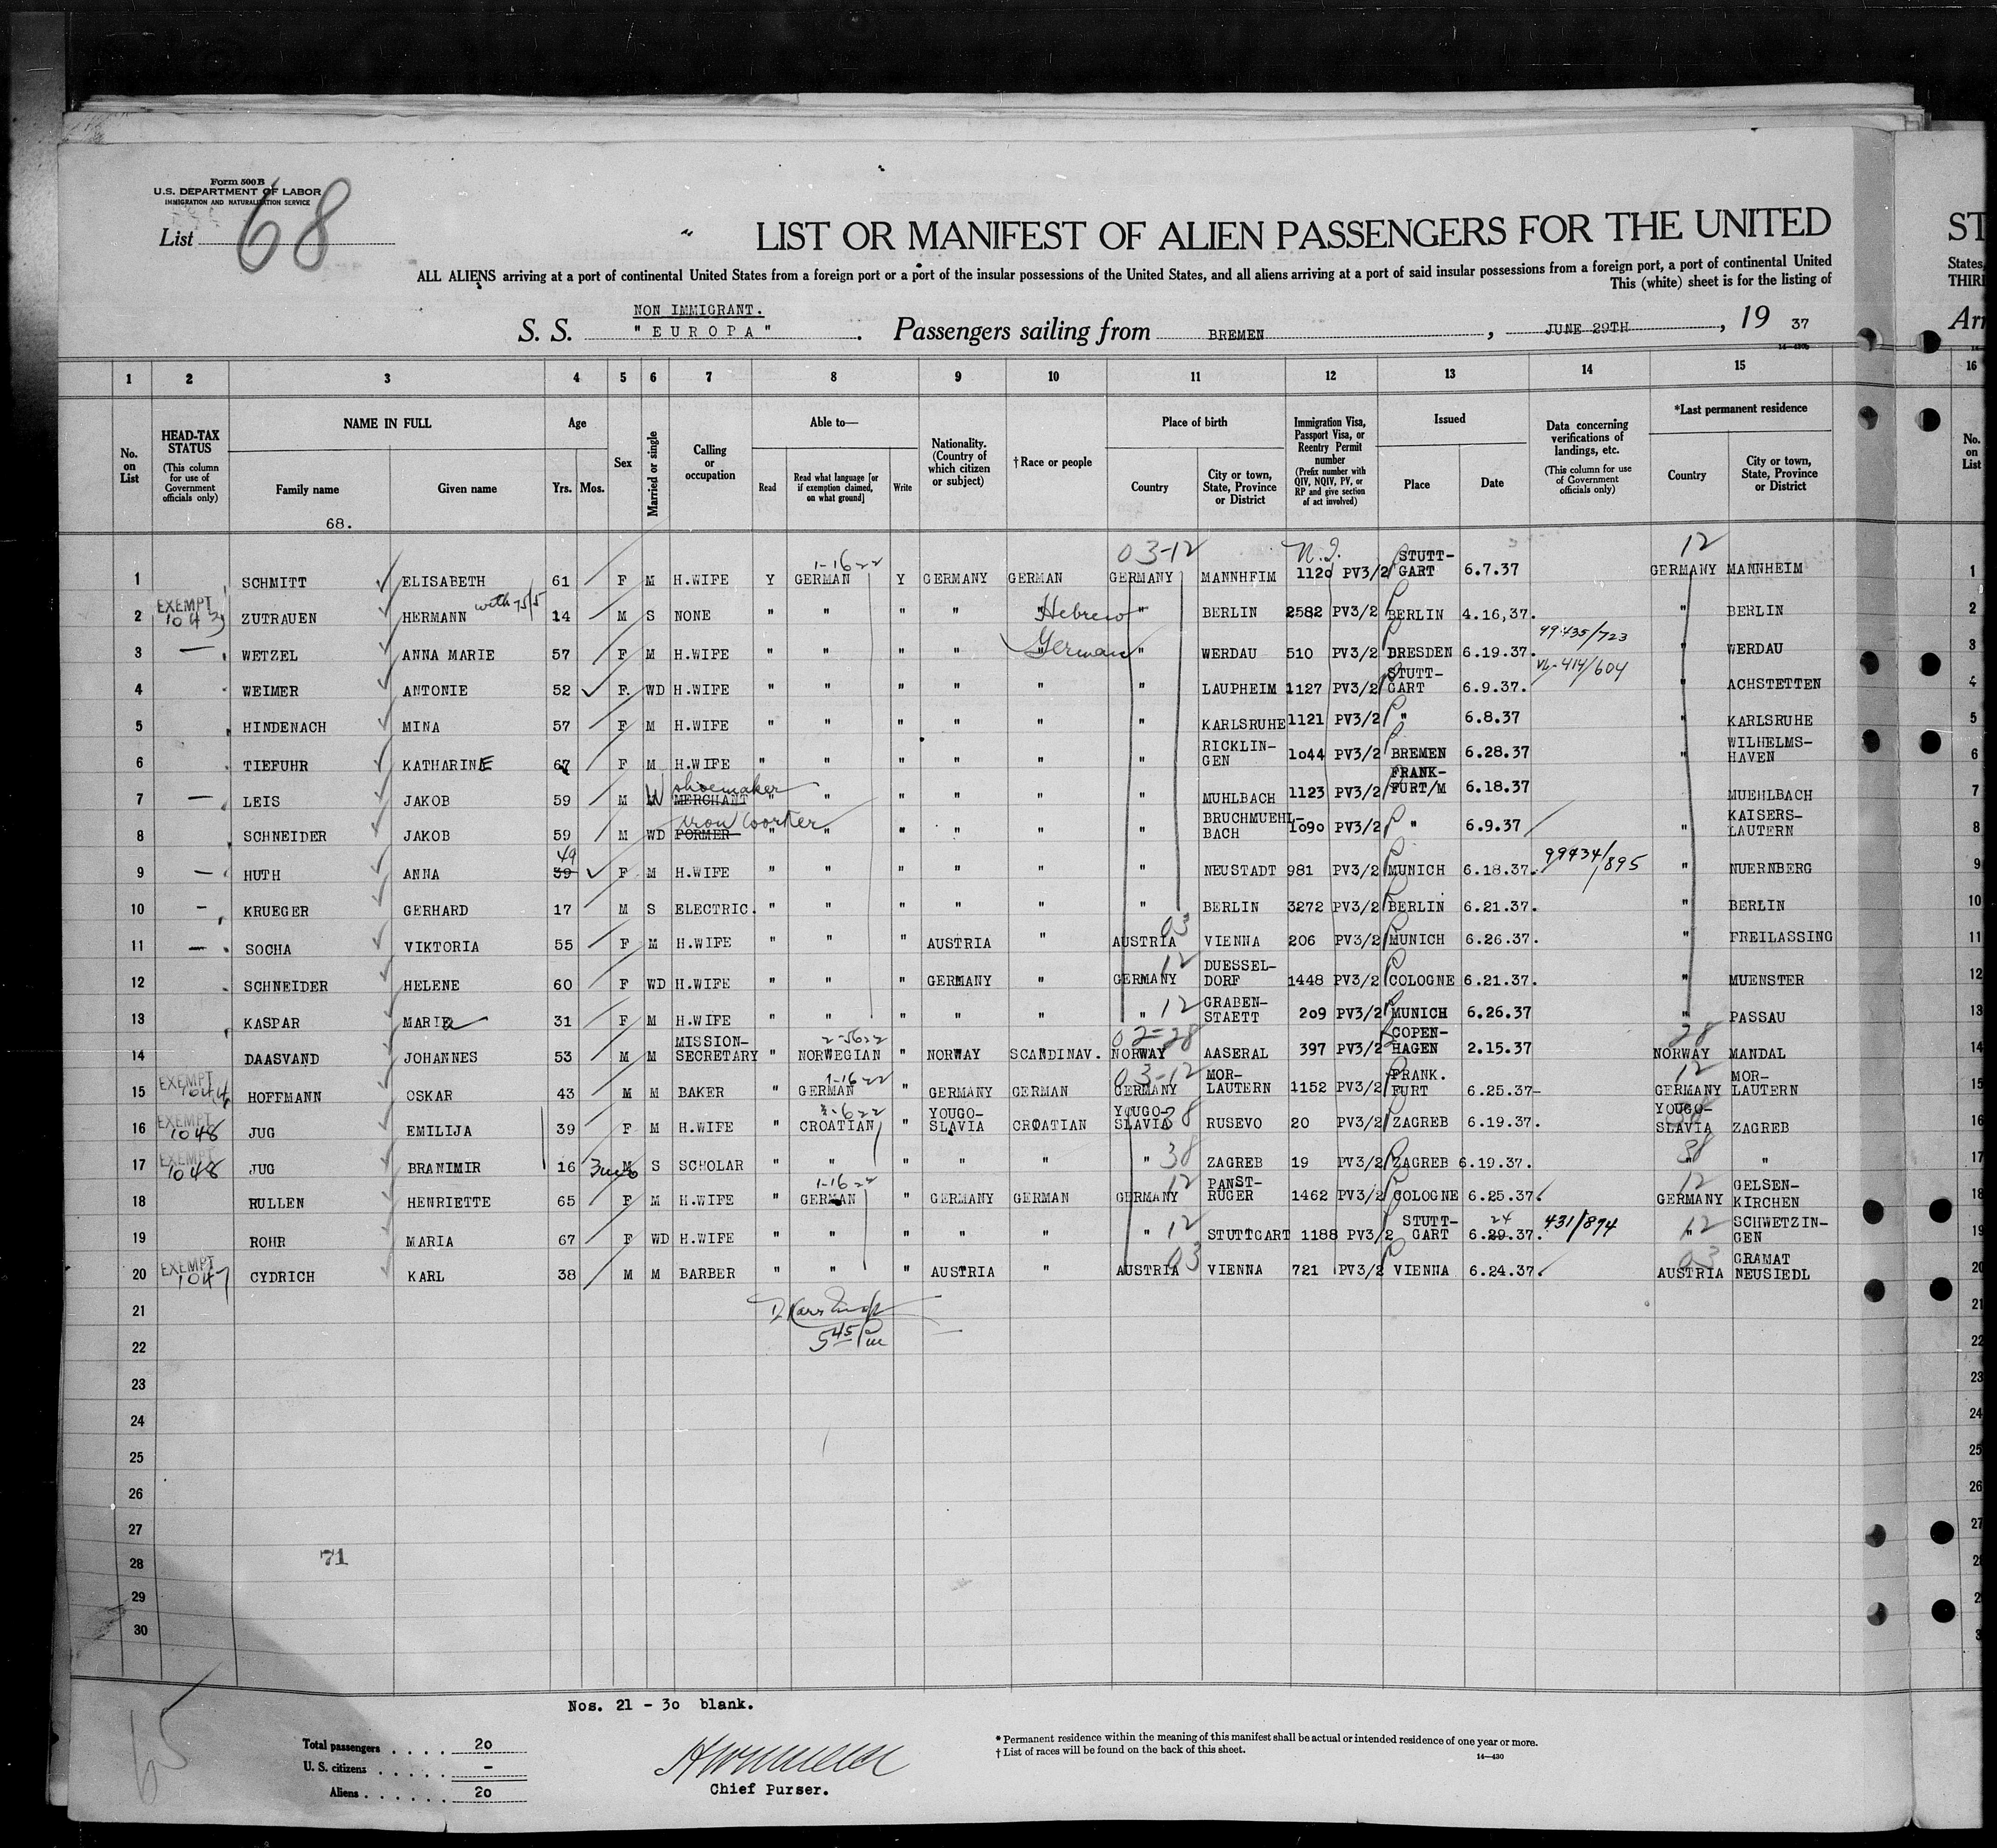 Form 500 B
U.S. DEPARTMENT OF LABOR
IMMIGRATION AND NATURALIZATION SERVICE
List 68
LIST OR MANIFEST OF ALIEN PASSENGERS FOR THE UNITED
ST
ALL ALIENS arriving at a port of continental United States from a foreign port or a port of the insular possessions of the United States, and all aliens arriving at a port of said insular possessions from a foreign port, a port of continental United
States,
This (white) sheet is for the listing of
THIR
NON IMMIGRANT.
S. S. "EUROPA". Passengers sailing from BREMEN, JUNE 29TH, 19 37
Arr
1 2 3 4 5 6 7 8 9 10 11 12 13 14 15 16
No. on List
HEAD-TAX STATUS (This column for use of Government officials only)
NAME IN FULL
Family name Given name
68.
Age
Yrs. Mos.
Sex
Married or single
Calling or occupation
Able to—
Read
Read what language [or if exemption claimed, on what ground]
Write
Nationality. (Country of which citizen or subject)
† Race or people
Place of birth
Country
City or town, State, Province or District
Immigration Visa, Passport Visa, or Reentry Permit number (Prefix number with QIV, NQIV, PV, or RP and give section of act involved)
Issued
Place Date
Data concerning verifications of landings, etc. (This column for use of Government officials only)
*Last permanent residence
Country
City or town, State, Province or District
No. on List
03-12 12
1-16-22
1 SCHMITT ELISABETH 61 F M H.WIFE Y GERMAN Y GERMANY GERMAN GERMANY MANNHEIM 1120 PV3/2 STUTT-GART 6.7.37 GERMANY MANNHEIM 1
2 EXEMPT ZUTRAUEN HERMANN with 14 M S NONE " " " " Hebrew " BERLIN 2582 PV3/2 BERLIN 4.16,37. " BERLIN 2
3 — WETZEL ANNA MARIE 57 F M H.WIFE " " " " German " WERDAU 510 PV3/2 DRESDEN 6.19.37. 99435/723 " WERDAU 3
4 WEIMER ANTONIE 52 F. WD H.WIFE " " " " " " LAUPHEIM 1127 PV3/2 STUTT-GART 6.9.37. 414/604 " ACHSTETTEN 4
5 HINDENACH MINA 57 F M H.WIFE " " " " " " KARLSRUHE 1121 PV3/2 " 6.8.37 " KARLSRUHE 5
6 TIEFUHR KATHARINE 67 F M H.WIFE " " " " " " RICKLIN-GEN 1044 PV3/2 BREMEN 6.28.37 " WILHELMS-HAVEN 6
7 — LEIS JAKOB 59 M W MERCHANT shoemaker " " " " " " MUHLBACH 1123 PV3/2 FRANK-FURT/M 6.18.37 MUEHLBACH 7
8 SCHNEIDER JAKOB 59 M WD FORMER Iron Worker " " " " " " BRUCHMUEHL-BACH 1090 PV3/2 " 6.9.37 " KAISERS-LAUTERN 8
9 — HUTH ANNA 39 49 F M H.WIFE " " " " " " NEUSTADT 981 PV3/2 MUNICH 6.18.37. 99434/895 " NUERNBERG 9
10 — KRUEGER GERHARD 17 M S ELECTRIC. " " " " " " BERLIN 3272 PV3/2 BERLIN 6.21.37. " BERLIN 10
11 — SOCHA VIKTORIA 55 F M H.WIFE " " " AUSTRIA " AUSTRIA 03 VIENNA 206 PV3/2 MUNICH 6.26.37. " FREILASSING 11
12 SCHNEIDER HELENE 60 F WD H.WIFE " " " GERMANY " GERMANY 12 DUESSEL-DORF 1448 PV3/2 COLOGNE 6.21.37. " MUENSTER 12
13 KASPAR MARIA 31 F M H.WIFE " " " " " " 12 GRABEN-STAETT 209 PV3/2 MUNICH 6.26.37 " PASSAU 13
14 DAASVAND JOHANNES 53 M M MISSION-SECRETARY " NORWEGIAN " NORWAY SCANDINAV. NORWAY 02-28 AASERAL 397 PV3/2 COPEN-HAGEN 2.15.37 NORWAY 28 MANDAL 14
15 EXEMPT HOFFMANN OSKAR 43 M M BAKER " GERMAN 1-16-22 " GERMANY GERMAN GERMANY 03-12 MOR-LAUTERN 1152 PV3/2 FRANK.FURT 6.25.37- GERMANY 12 MOR-LAUTERN 15
16 EXEMPT 1048 JUG EMILIJA 39 F M H.WIFE " CROATIAN " YOUGO-SLAVIA CROATIAN YOUGO-SLAVIA 38 RUSEVO 20 PV3/2 ZAGREB 6.19.37. YOUGO-SLAVIA 38 ZAGREB 16
17 EXEMPT 1048 JUG BRANIMIR 16 M S SCHOLAR " " " " " " 38 ZAGREB 19 PV3/2 ZAGREB 6.19.37. " 38 " 17
18 RULLEN HENRIETTE 65 F M H.WIFE " GERMAN 1-16-22 " GERMANY GERMAN GERMANY 12 PANST-RUGER 1462 PV3/2 COLOGNE 6.25.37. GERMANY 12 GELSEN-KIRCHEN 18
19 ROHR MARIA 67 F WD H.WIFE " " " " " " 12 STUTTGART 1188 PV3/2 STUTT-GART 6.29.37. 24 431/894 " 12 SCHWETZIN-GEN 19
20 EXEMPT 1047 CYDRICH KARL 38 M M BARBER " " " AUSTRIA " AUSTRIA 03 VIENNA 721 PV3/2 VIENNA 6.24.37. AUSTRIA 03 GRAMAT NEUSIEDL 20
21 21
22 5 45 Pm 22
23 23
24 24
25 25
26 26
27 27
28 71
29
30
Nos. 21 - 30 blank.
65
Total passengers . . . . . 20
U. S. citizens . . . . . -
Aliens . . . . . . 20
Chief Purser.
* Permanent residence within the meaning of this manifest shall be actual or intended residence of one year or more.
† List of races will be found on the back of this sheet.
14—430